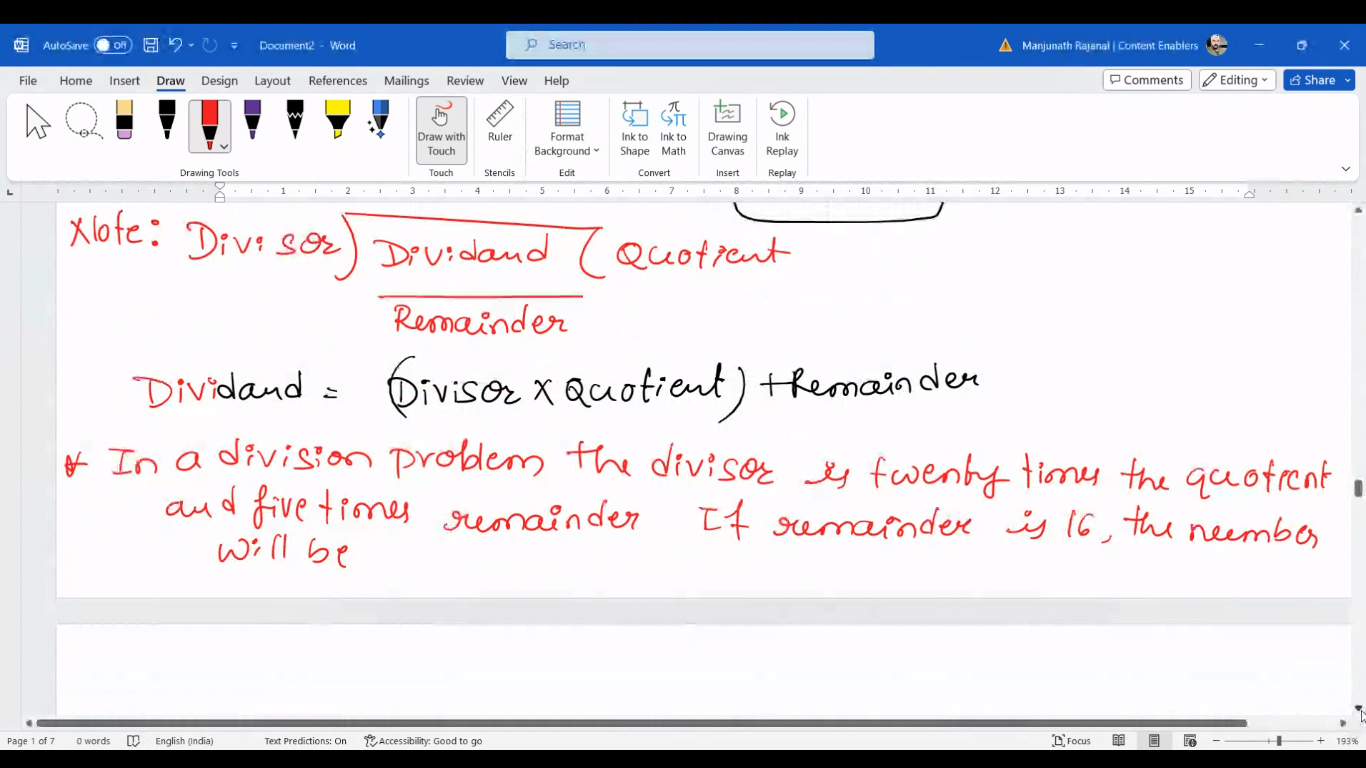 AutoSave Off Document2 - Word Search Manjunath Rajanal | Content Enablers
File Home Insert Draw Design Layout References Mailings Review View Help Comments Editing Share
Draw with Touch Ruler Format Background Ink to Shape Ink to Math Drawing Canvas Ink Replay
Drawing Tools Touch Stencils Edit Convert Insert Replay
1 2 3 4 5 6 7 8 9 10 11 12 13 14 15
Note: Divisor) Dividand ( Quotient
Remainder
Dividand = (Divisor X Quotient) + Remainder
* In a division problem the divisor is twenty times the quotient
and five times remainder If remainder is 16, the number
will be
Page 1 of 7 0 words English (India) Text Predictions: On Accessibility: Good to go Focus 193%